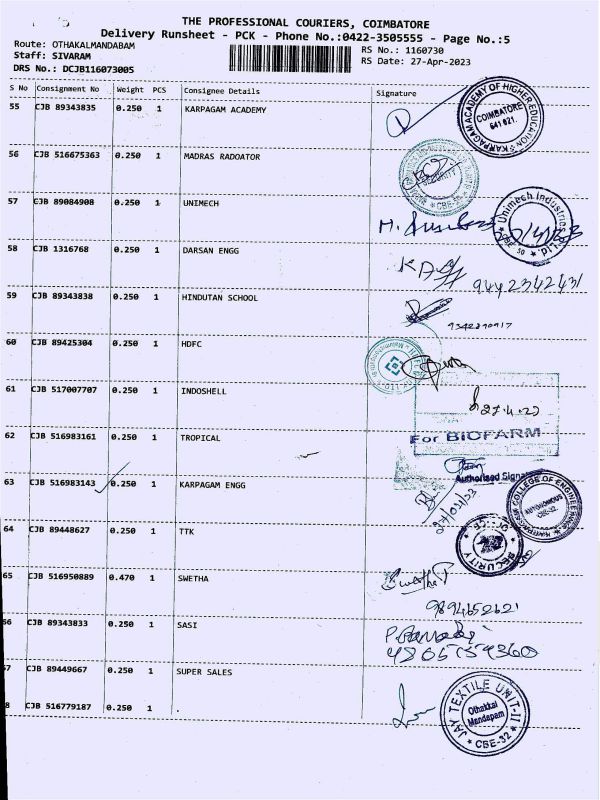 THE PROFESSIONAL COURIERS, COIMBATORE
Delivery Runsheet - PCK - Phone No.:0422-3505555 - Page No.:5
Route: OTHAKALMANDABAM
Staff: SIVARAM
DRS No.: DCJB116073005
RS No.: 1160730
RS Date: 27-Apr-2023
S No Consignment No Weight PCS Consignee Details Signature
55 CJB 89343835 0.250 1 KARPAGAM ACADEMY
KARPAGAM ACADEMY OF HIGHER EDUCATION
COIMBATORE
641 021.
56 CJB 516675363 0.250 1 MADRAS RADOATOR
SECURITY
57 CJB 89084908 0.250 1 UNIMECH
Unimech Industries
58 CJB 1316768 0.250 1 DARSAN ENGG
9442342431
59 CJB 89343838 0.250 1 HINDUTAN SCHOOL
60 CJB 89425304 0.250 1 HDFC
61 CJB 517007707 0.250 1 INDOSHELL
62 CJB 516983161 0.250 1 TROPICAL
For BIOFARM
63 CJB 516983143 0.250 1 KARPAGAM ENGG
COLLEGE OF ENGINEERING
AUTONOMOUS
CBE-32
64 CJB 89448627 0.250 1 TTK
SECURITY
65 CJB 516950889 0.470 1 SWETHA
Swetha P
9894652621
66 CJB 89343833 0.250 1 SASI
67 CJB 89449667 0.250 1 SUPER SALES
8 CJB 516779187 0.250 1 .
JAY TEXTILE UNIT-II
Othakkal
Mandapam
CBE-32